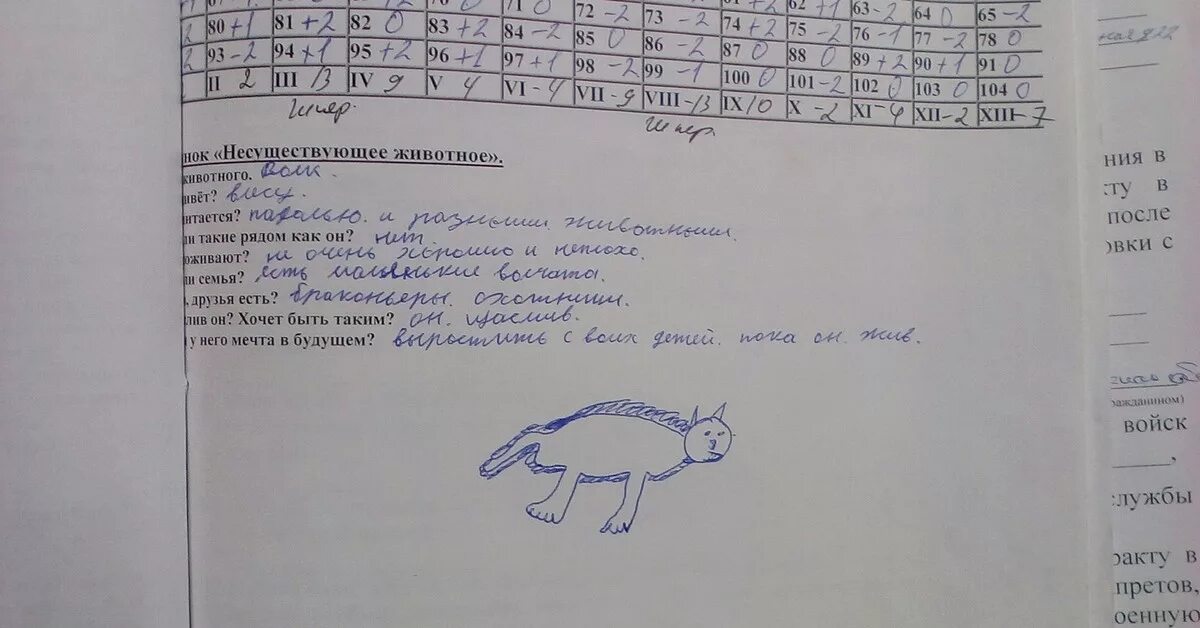 71 0 72 -2 73 -2 62 +1 63 -2 64 0 65 -2
80 +1 81 +2 82 0 83 +2 84 -2 85 0 86 -2 74 +2 75 -2 76 -1 77 -2 78 0
93 -2 94 +1 95 +2 96 +1 97 +1 98 -2 99 -1 87 0 88 0 89 +2 90 +1 91 0
100 0 101 -2 102 0 103 0 104 0
II 2 III 13 IV 9 V 4 VI -4 VII -9 VIII -13 IX 10 X -2 XI -4 XII -2 XIII -7
нок «Несуществующее животное».
животного. Волк.
ивёт? влесу.
итается? падалью. и разными животными.
ли такие рядом как он? нет.
оживают? не очень хорошо и неплохо.
ли семья? есть маленькие волчата.
, друзья есть? браконьеры. охотники.
лив он? Хочет быть таким? он. щаслив.
у него мечта в будущем? выростить с воих детей. пока он. жив.
ния в
ту в
после
овки с
ражданином)
войск
службы
ракту в
претов,
оенную